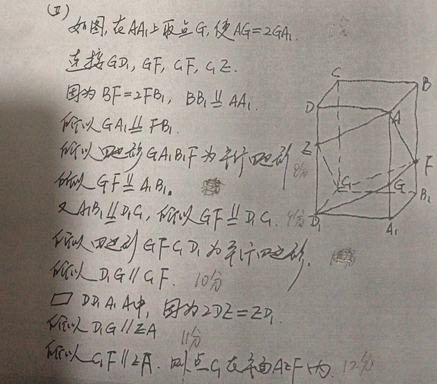 (Ⅱ)
如图,在AA₁上取点G,使AG=2GA₁.
连接GD₁, GF, C₁F, C₁E.
因为BF=2FB₁, BB₁⫽AA₁.
所以GA₁⫽FB₁.
所以四边形GA₁B₁F为平行四边形
所以GF⫽A₁B₁.
又A₁B₁⫽D₁C₁, 所以GF⫽D₁C₁.
所以四边形GFC₁D₁为平行四边形.
所以D₁G∥C₁F. 10分
▱DD₁A₁A中, 因为2DE=ED₁.
所以D₁G∥EA 11分
所以C₁F∥EA. 即点C₁在平面AEF内. 12分
C
B
D
A
E
F
C₁
G
B₁
D₁
A₁